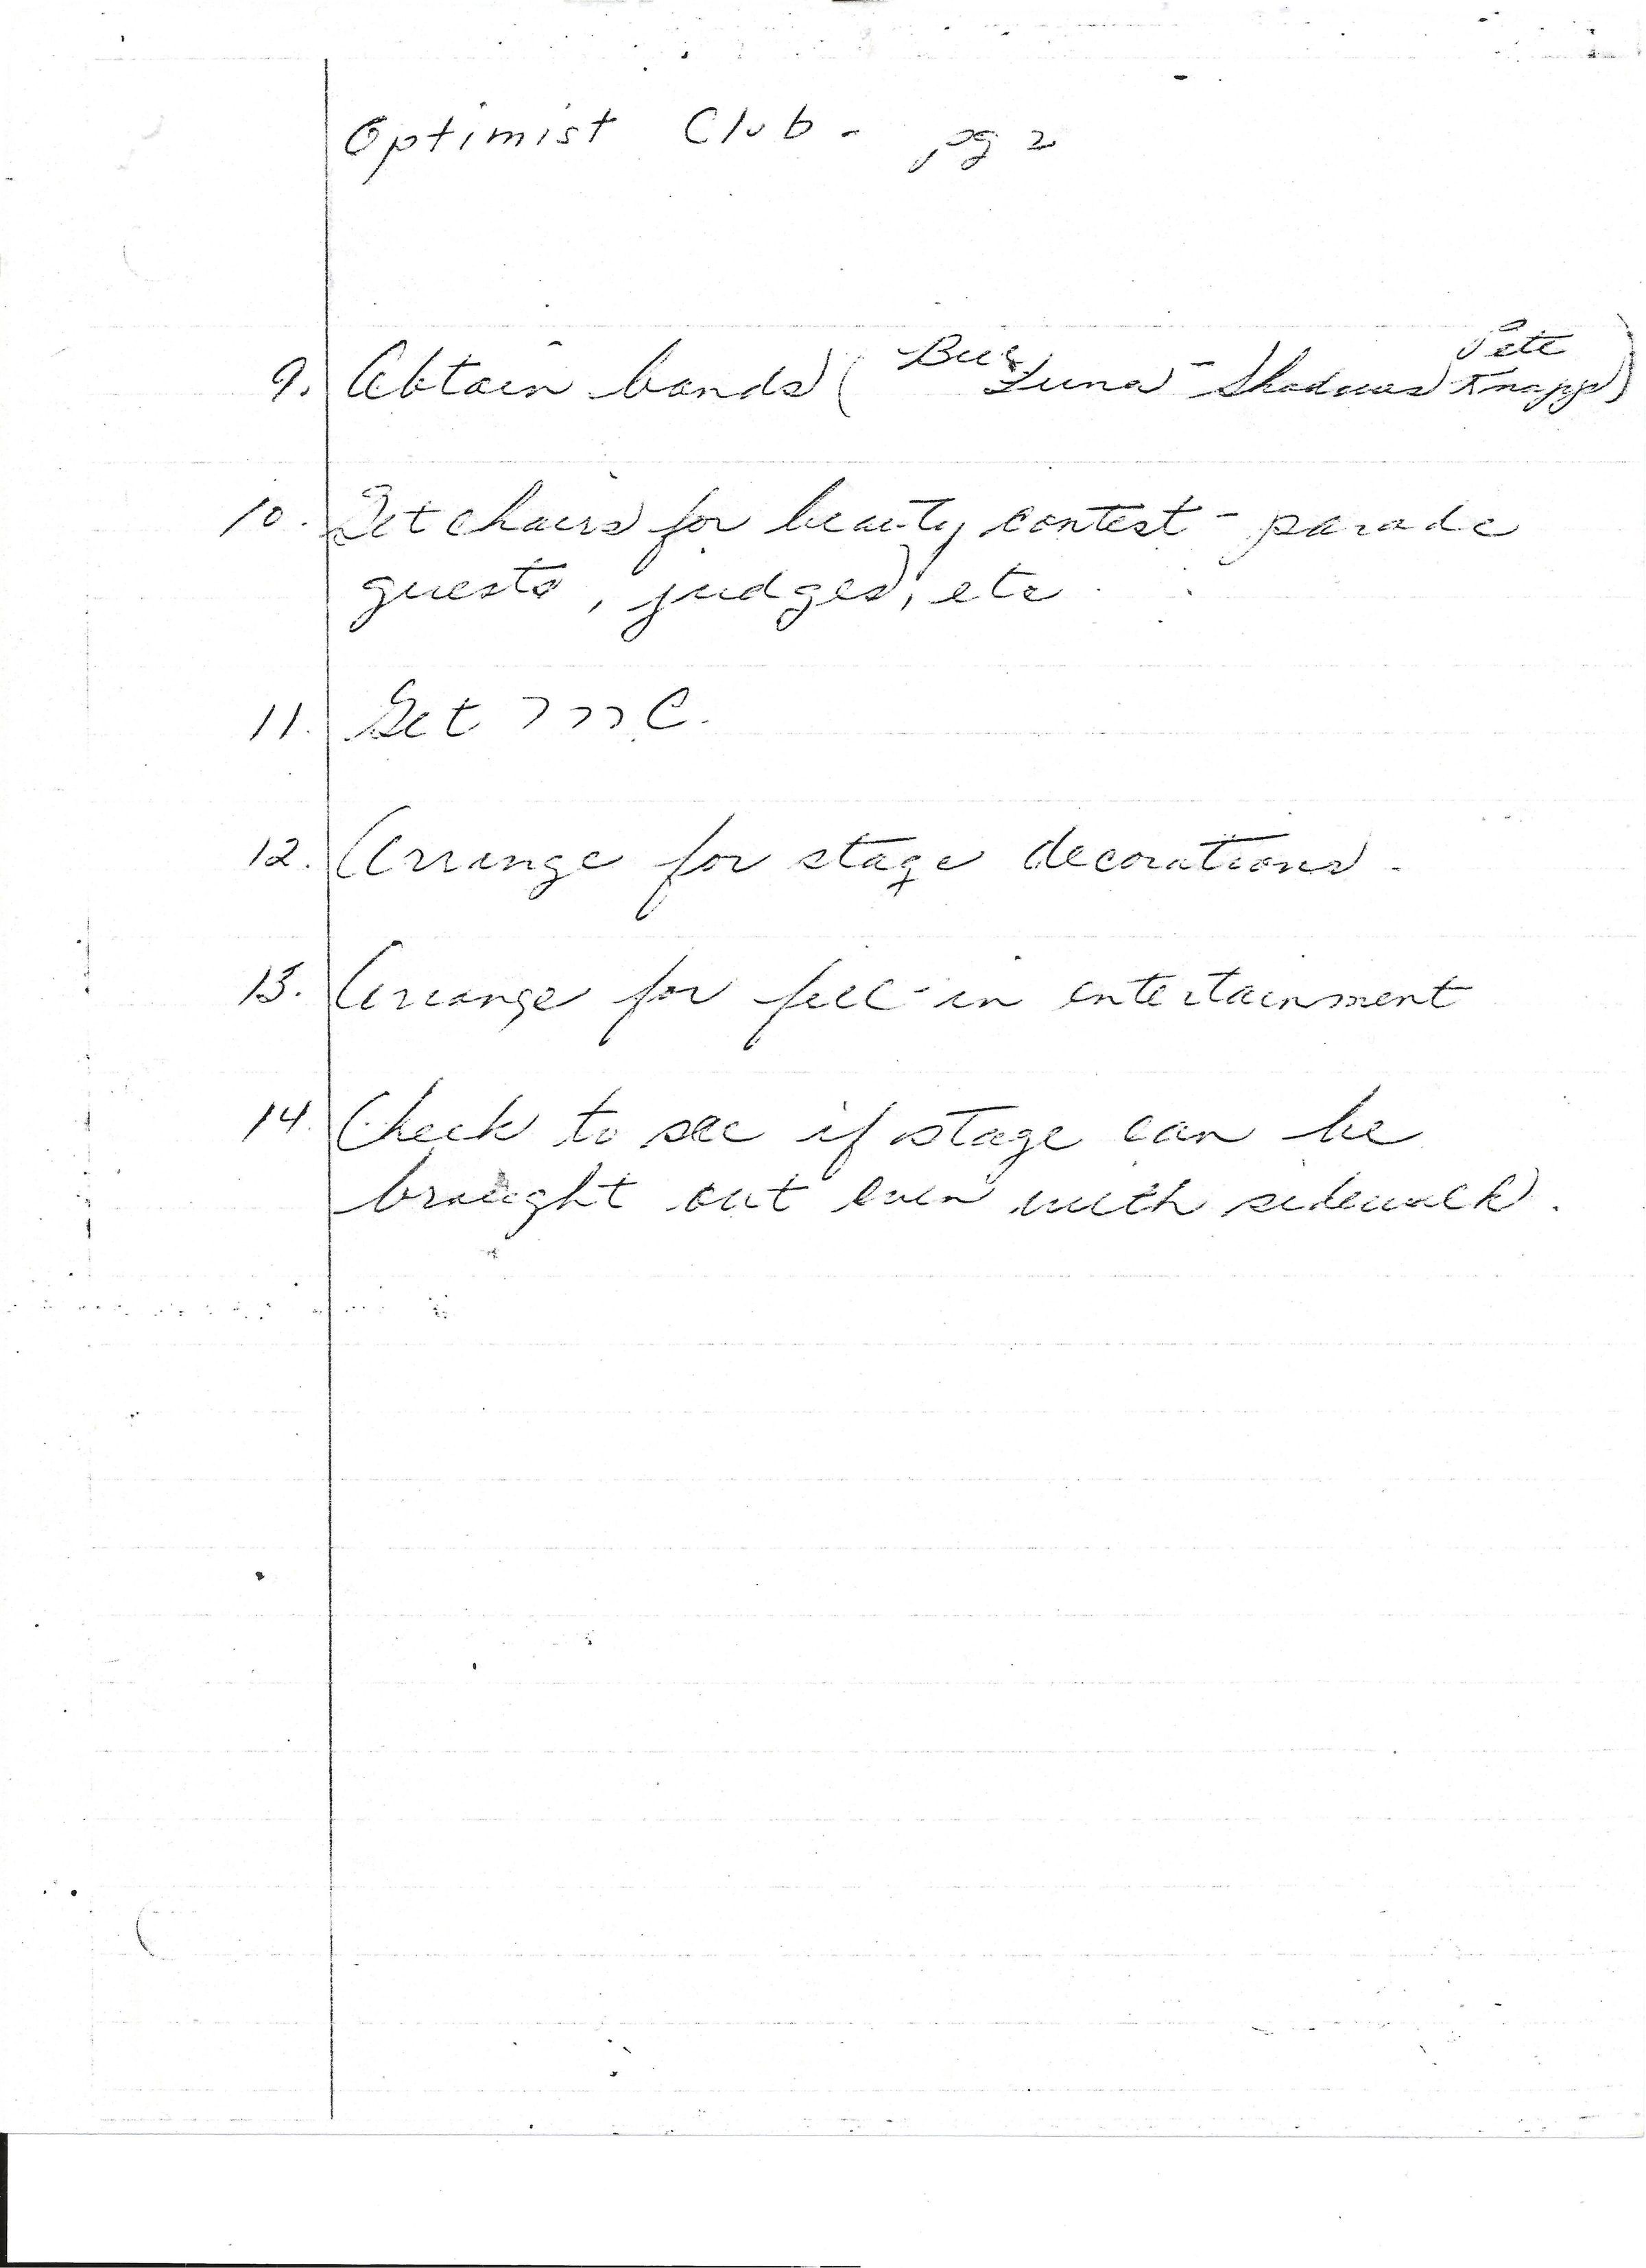 Optimist Club - pg 2
9. Obtain bands (Bill Luna - Shadows Pete Knapp)
10. Get chairs for beauty contest - parade
guests, judges, etc.
11. Get M.C.
12. Arrange for stage decorations.
13. Arrange for fill-in entertainment
14. Check to see if stage can be
brought out even with sidewalk.